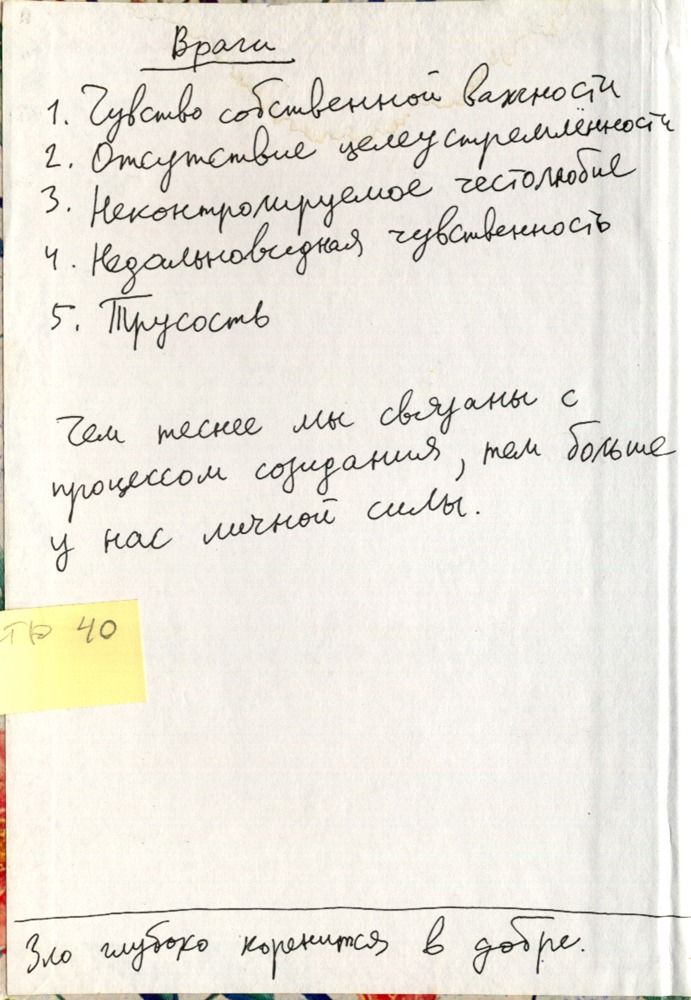 Враги
1. Чувство собственной важности
2. Отсутствие целеустремлённости
3. Неконтролируемое честолюбие
4. Недальновидная чувственность
5. Трусость
Чем теснее мы связаны с
процессом созидания, тем больше
у нас личной силы.
тр 40
Зло глубоко коренится в добре.